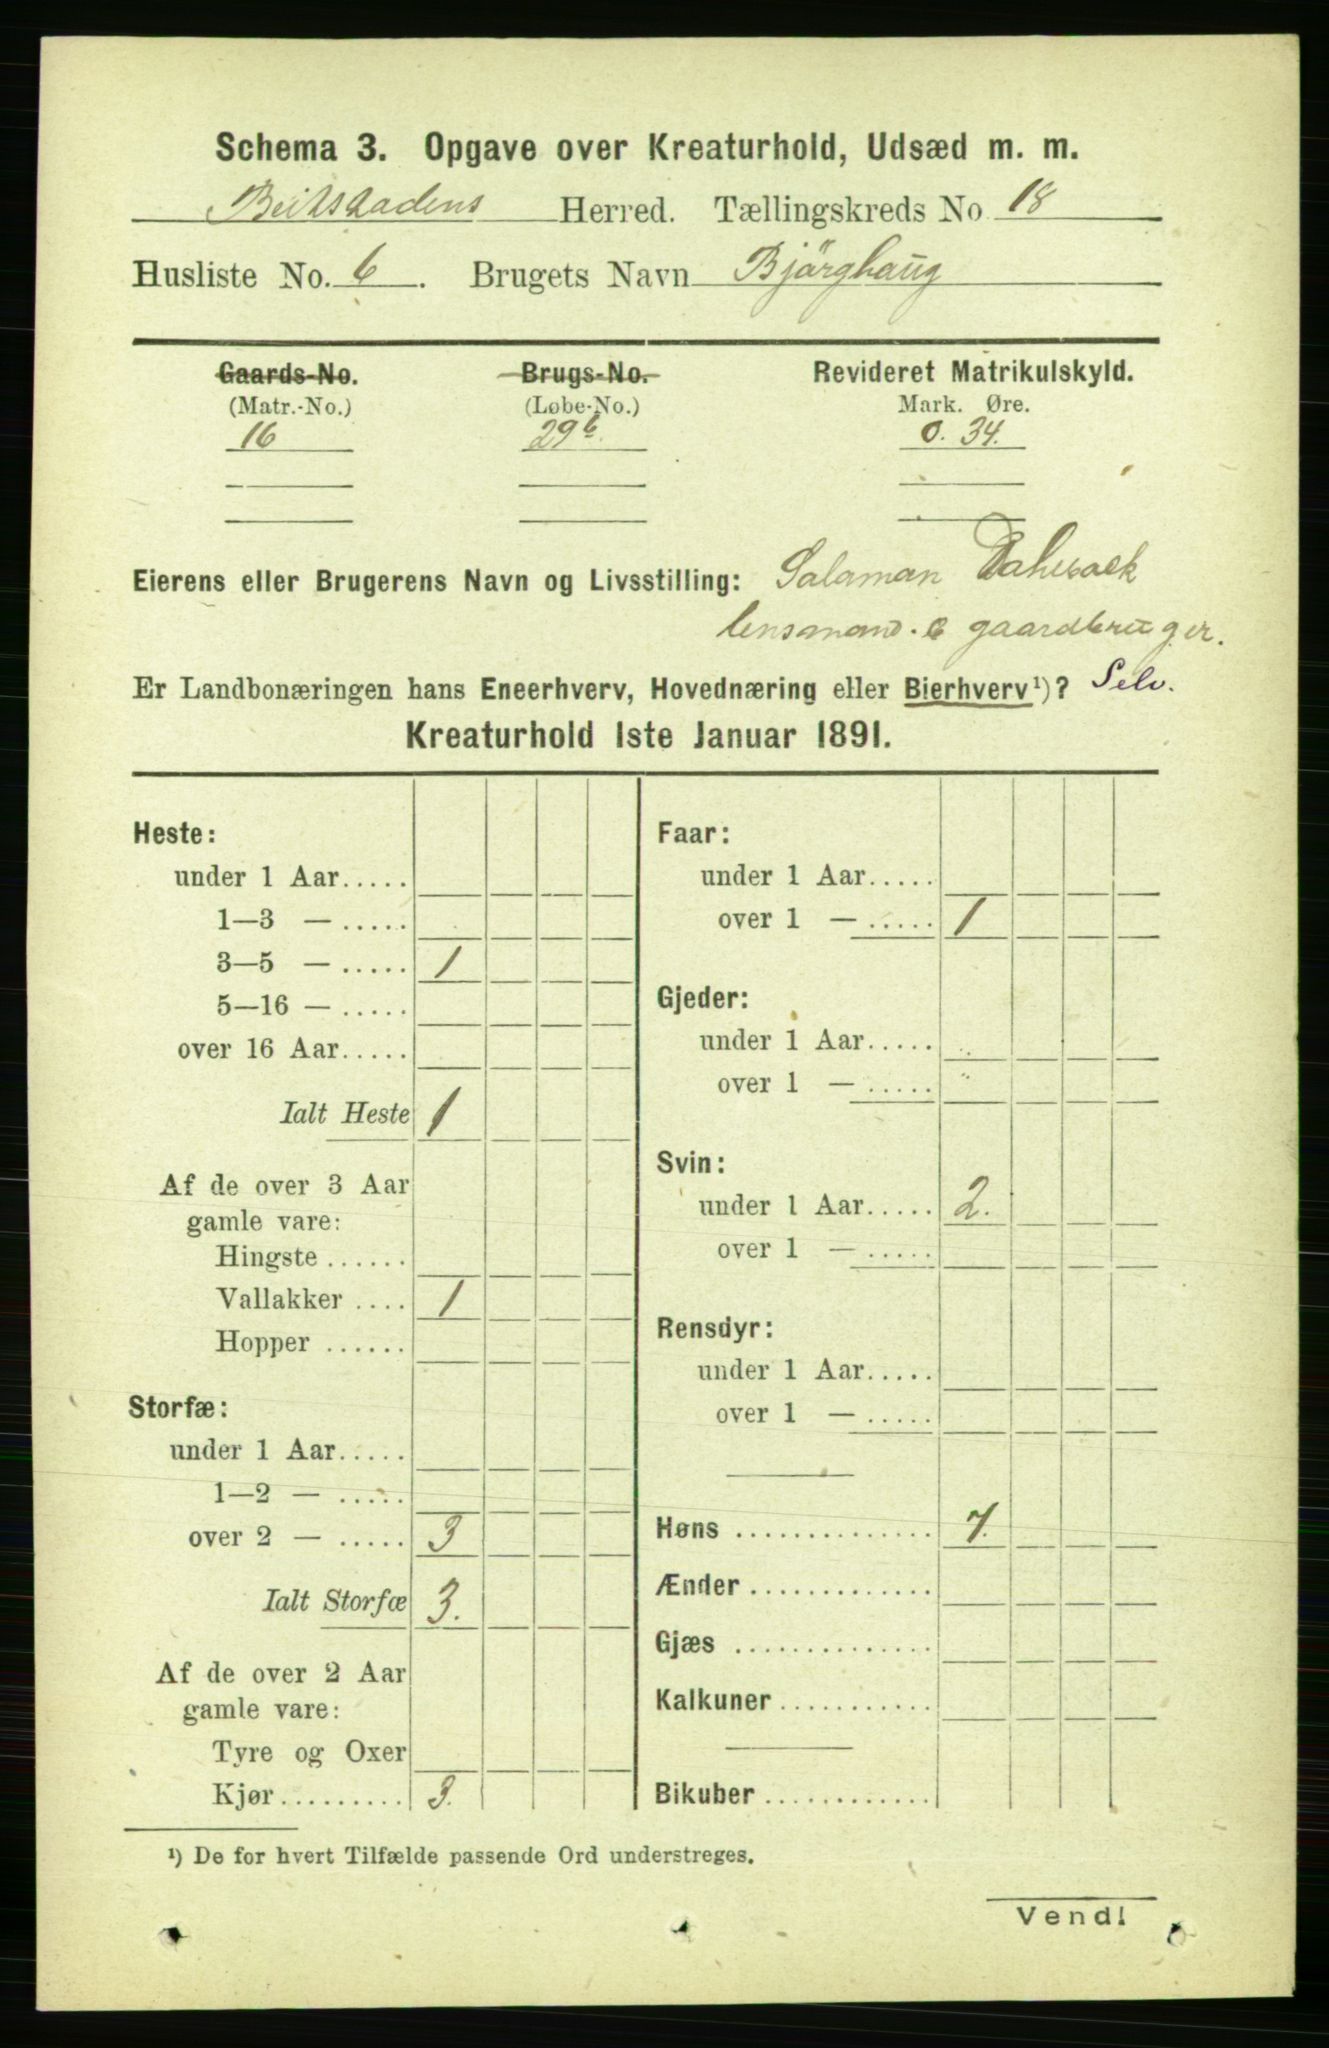 Schema 3. Opgave over Kreaturhold, Udsæd m. m.
Beitstadens Herred. Tællingskreds No 18
Husliste No. 6. Brugets Navn Bjørghaug
Gaards-No. Brugs-No. Revideret Matrikulskyld.
(Matr.-No.) (Løbe-No.) Mark. Øre.
16 29b. 0. 34.
Eierens eller Brugerens Navn og Livsstilling: Salaman
lensmand. & gaardbruger.
Er Landbonæringen hans Eneerhverv, Hovednæring eller Bierhverv¹)? Selv.
Kreaturhold 1ste Januar 1891.
Heste:
under 1 Aar.....
1—3 — .....
3—5 — ..... 1
5—16 — .....
over 16 Aar.....
Ialt Heste 1
Af de over 3 Aar
gamle vare:
Hingste ......
Vallakker .... 1
Hopper ......
Storfæ:
under 1 Aar.....
1—2 — .....
over 2 — ..... 3
Ialt Storfæ 3.
Af de over 2 Aar
gamle vare:
Tyre og Oxer
Kjør......... 3.
Faar:
under 1 Aar.....
over 1 — ..... 1
Gjeder:
under 1 Aar..... "
over 1 — ..... "
Svin:
under 1 Aar..... 2.
over 1 — .....
Rensdyr:
under 1 Aar.....
over 1 — .....
Høns .............. 7.
Ænder .............
Gjæs ..............
Kalkuner ...........
Bikuber ............
¹) De for hvert Tilfælde passende Ord understreges.
Vend!